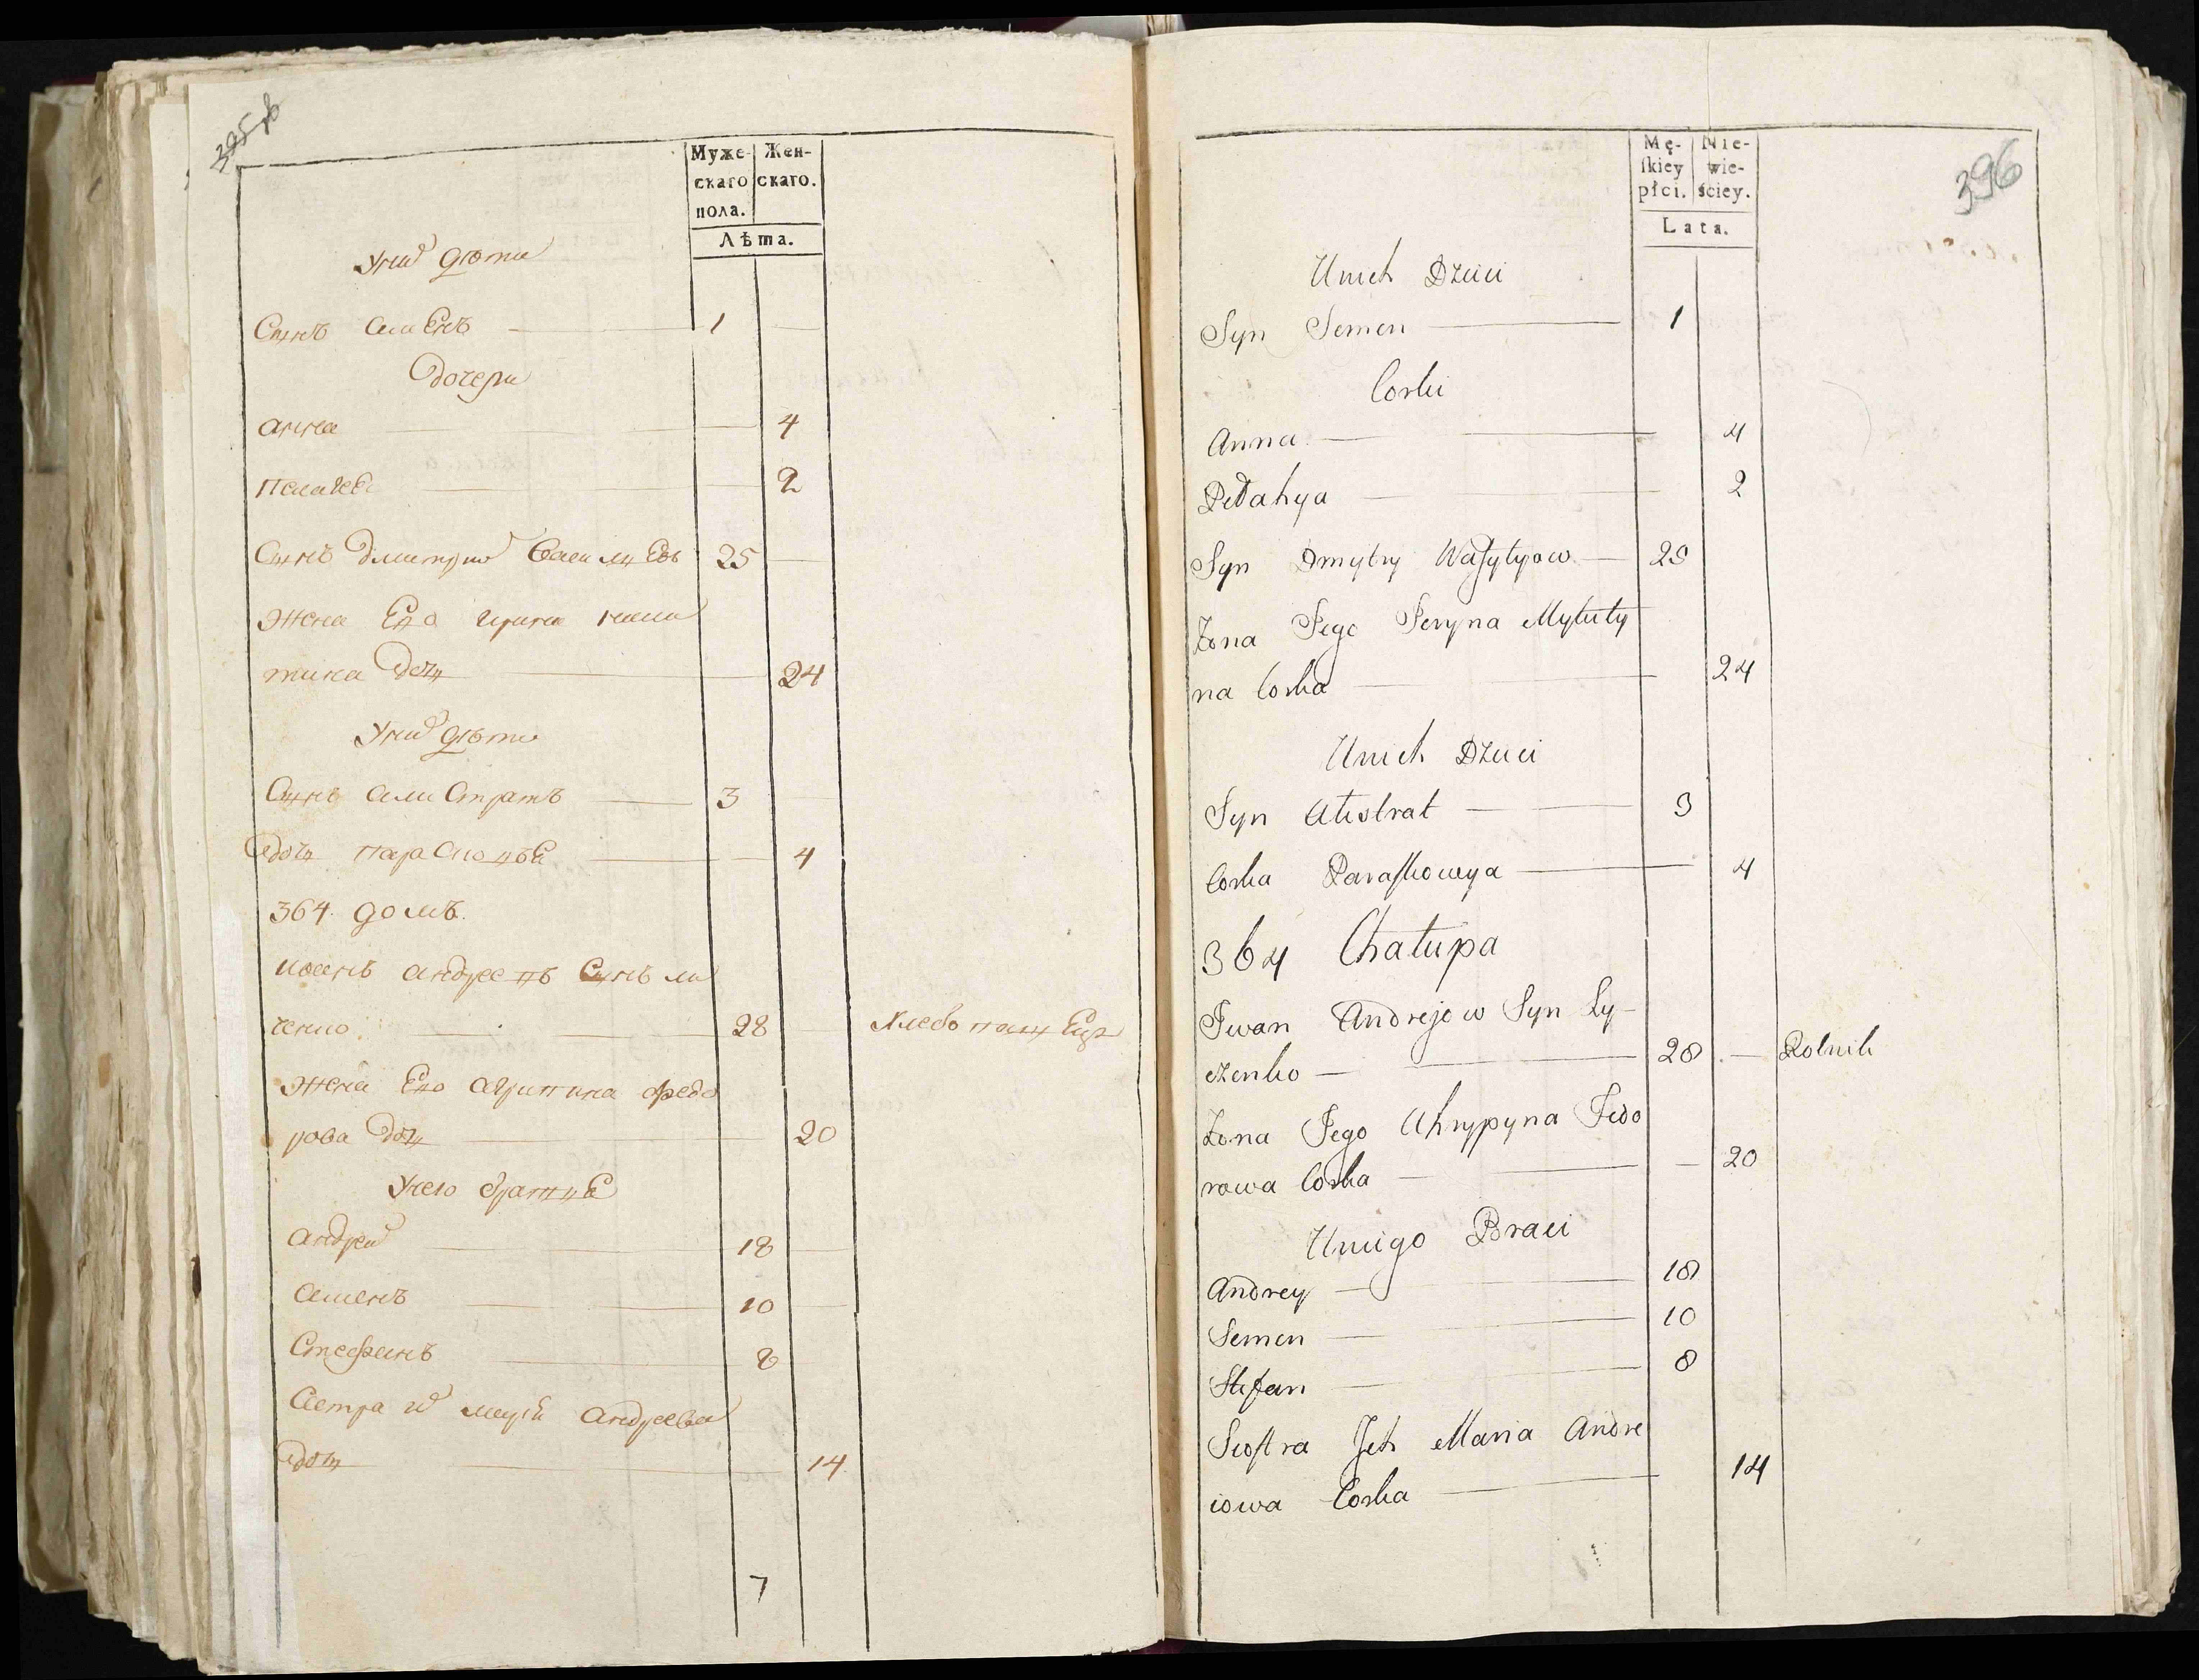 395 об
Муже-
скаго
пола.
Жен-
скаго.
Лѣта.
Уних дѣти
Сынъ Семенъ 1
Дочери
Анна 4
Пелагея 2
Сынъ Дмитрий Васильевъ 25
Жена Его Ирина Ники
тина дочь 24
Уних дѣти
Сынъ Алистратъ 3
Дочь Парасковѣя 4
364. домъ.
Иванъ Андреевъ Сынъ Ли
ченко 28 Хлебопашецъ
Жена Его Агрипина Федо
рова дочь 20
Унего братья
Андрей 18
Семенъ 10
Стефанъ 8
Сестра их Мария Андреева
дочь 14
7
396
Mę-
ſkiey
płci.
Nie-
wie-
ściey.
Lata.
Unich Dzieci
Syn Semen 1
Corki
Anna 4
Pełahya 2
Syn Dmytry Waſylyow 25
Zona Jego Jeryna Mykity
na Corka 24
Unich Dzieci
Syn Alistrat 3
Corka Paraſkowya 4
364 Chałupa
Jwan Andrejow Syn Ly-
czenko 28 Rolnik
Zona Jego Ahrypyna Fedo
rowa Corka 20
Uniego Braci
Andrey 18
Semen 10
Stefan 8
Sioſtra Jch Maria Andre
iowa Corka 14